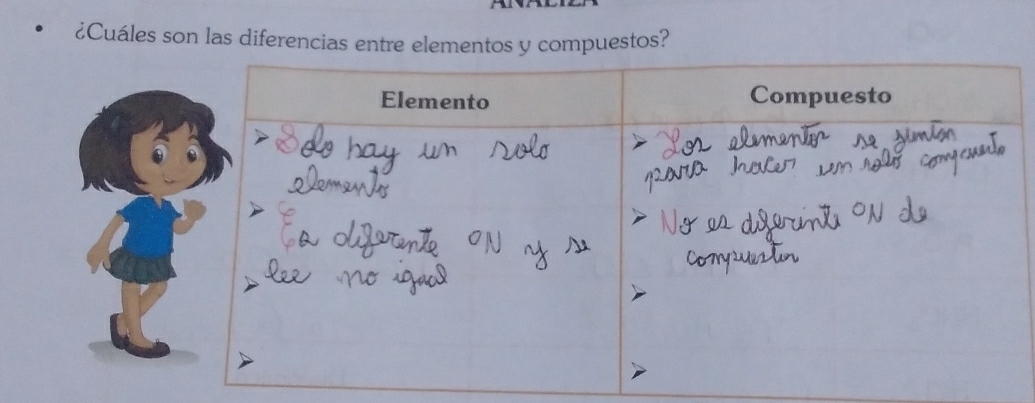 ANALIZA
• ¿Cuáles son las diferencias entre elementos y compuestos?
Elemento
Compuesto
➤ Solo hay un solo
elemento
➤ Es diferente ON y se
➤ lee no igual
➤
➤ Los elementos se juntan
para hacer un solo compuesto
➤ No es diferinte ON de
compuestos
➤
➤